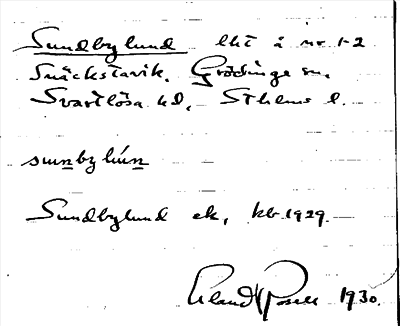 Sundbylund lht å nr 1-2
Snäckstavik. Grödinge sn.
Svartlösa hd, Sthlms l.
sunbylún
Sundbylund ek, kb. 1929.
1930.